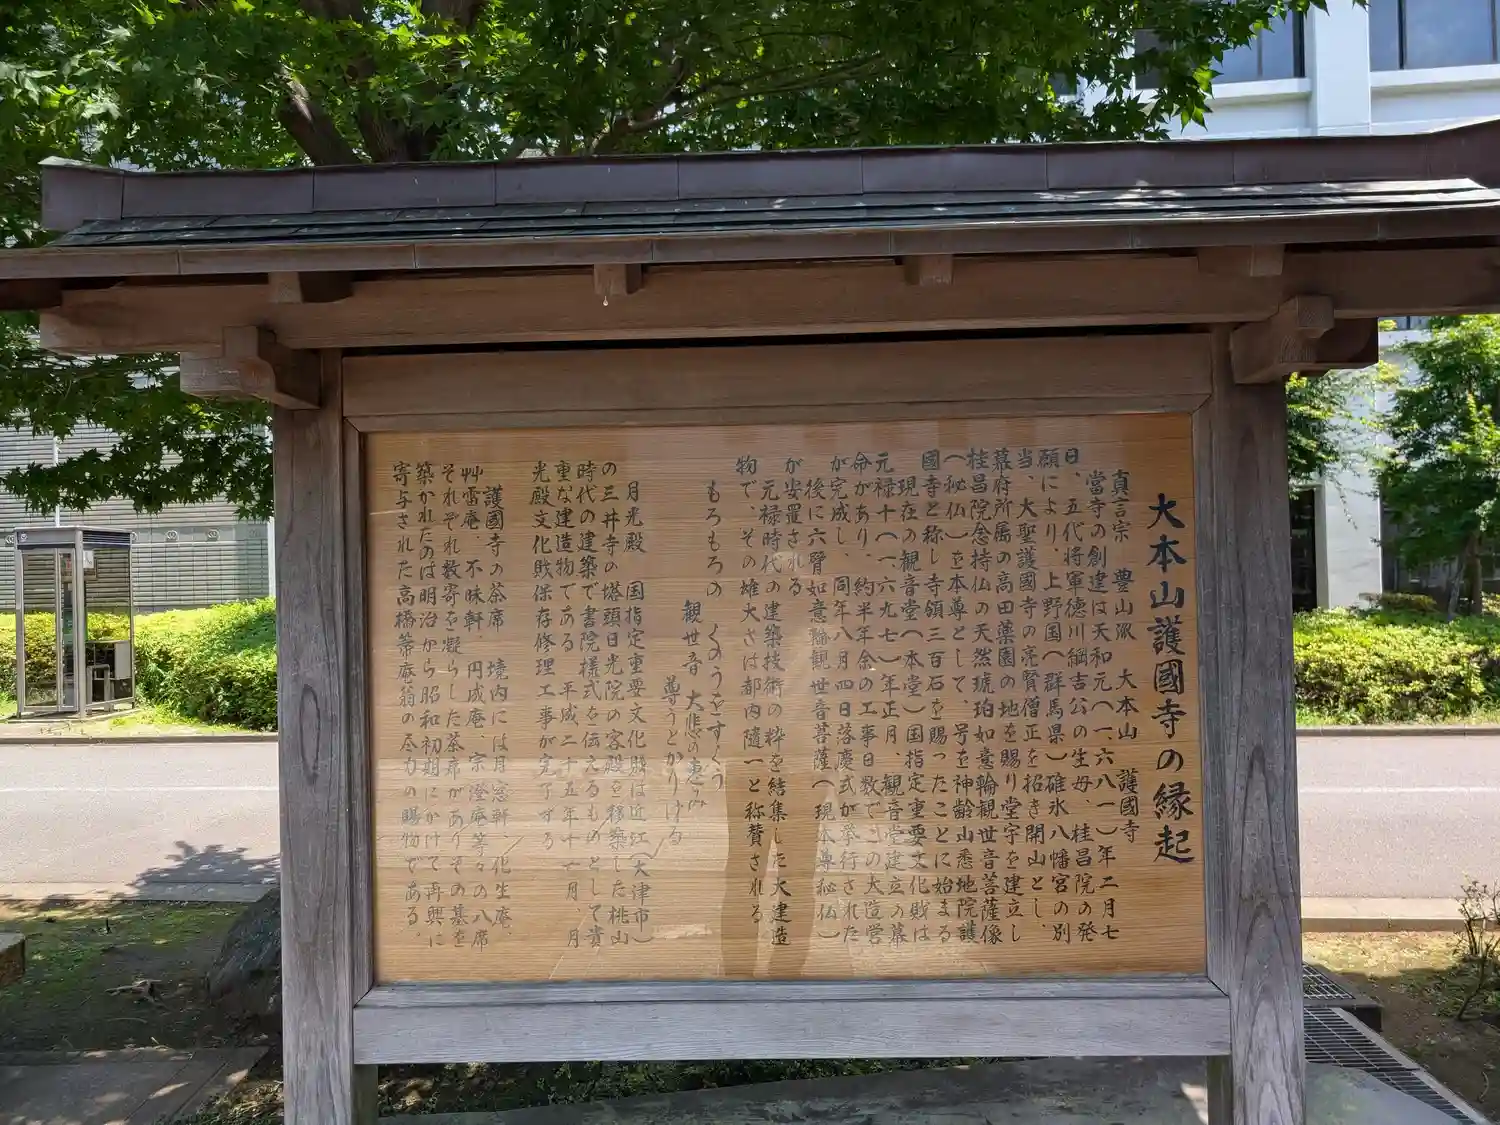 大本山護國寺の縁起
真言宗 豊山派 大本山 護國寺
當寺の創建は天和元(一六八一)年二月七
日、五代将軍徳川綱吉公の生母、桂昌院の発
願により、上野国(群馬県)碓氷八幡宮の別
当、大聖護國寺の亮賢僧正を招き開山とし、
幕府所属の高田薬園の地を賜り堂宇を建立し
桂昌院念持仏の天然琥珀如意輪観世音菩薩像
(秘仏)を本尊として、号を神齢山悉地院護
國寺と称し寺領三百石を賜ったことに始まる
現在の観音堂(本堂)国指定重要文化財は
元禄十(一六九七)年正月、観音堂建立の幕
命があり、約半年余の工事日数でこの大造営
が完成し、同年八月四日落慶式が挙行された
後に六臂如意輪観世音菩薩(現本尊秘仏)
が安置される
元禄時代の建築技術の粋を結集した大建造
物で、その雄大さは都内随一と称賛される
もろもろの くのうをすくう
観世音 大悲の恵み
尊うとかりける
月光殿 国指定重要文化財は近江(大津市)
の三井寺の塔頭日光院の客殿を移築した桃山
時代の建築で書院様式を伝えるものとして貴
重な建造物である 平成二十五年十一月、月
光殿文化財保存修理工事が完了する
護國寺の茶席 境内には月窓軒、化生庵、
艸雷庵、不昧軒、円成庵、宗澄庵等々の八席
それぞれ数寄を凝らした茶席がありその基を
築かれたのは明治から昭和初期にかけて再興に
寄与された高橋箒庵翁の尽力の賜物である。